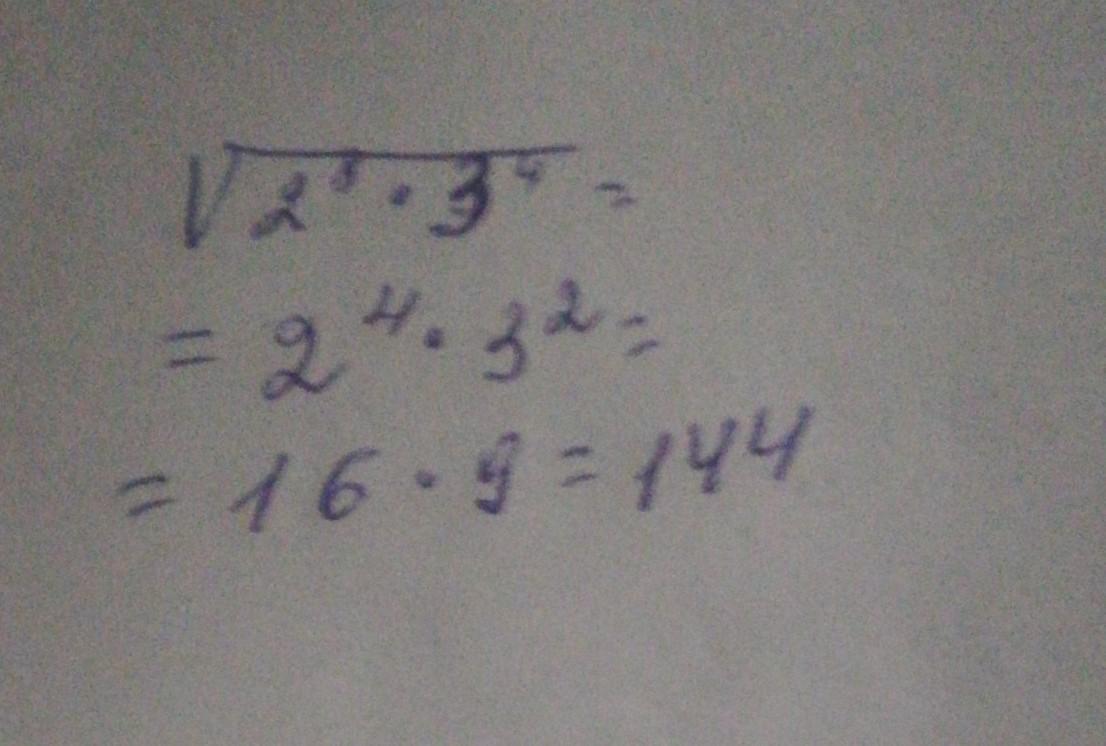 √2⁸ · 3⁴ =
= 2⁴ · 3² =
= 16 · 9 = 144